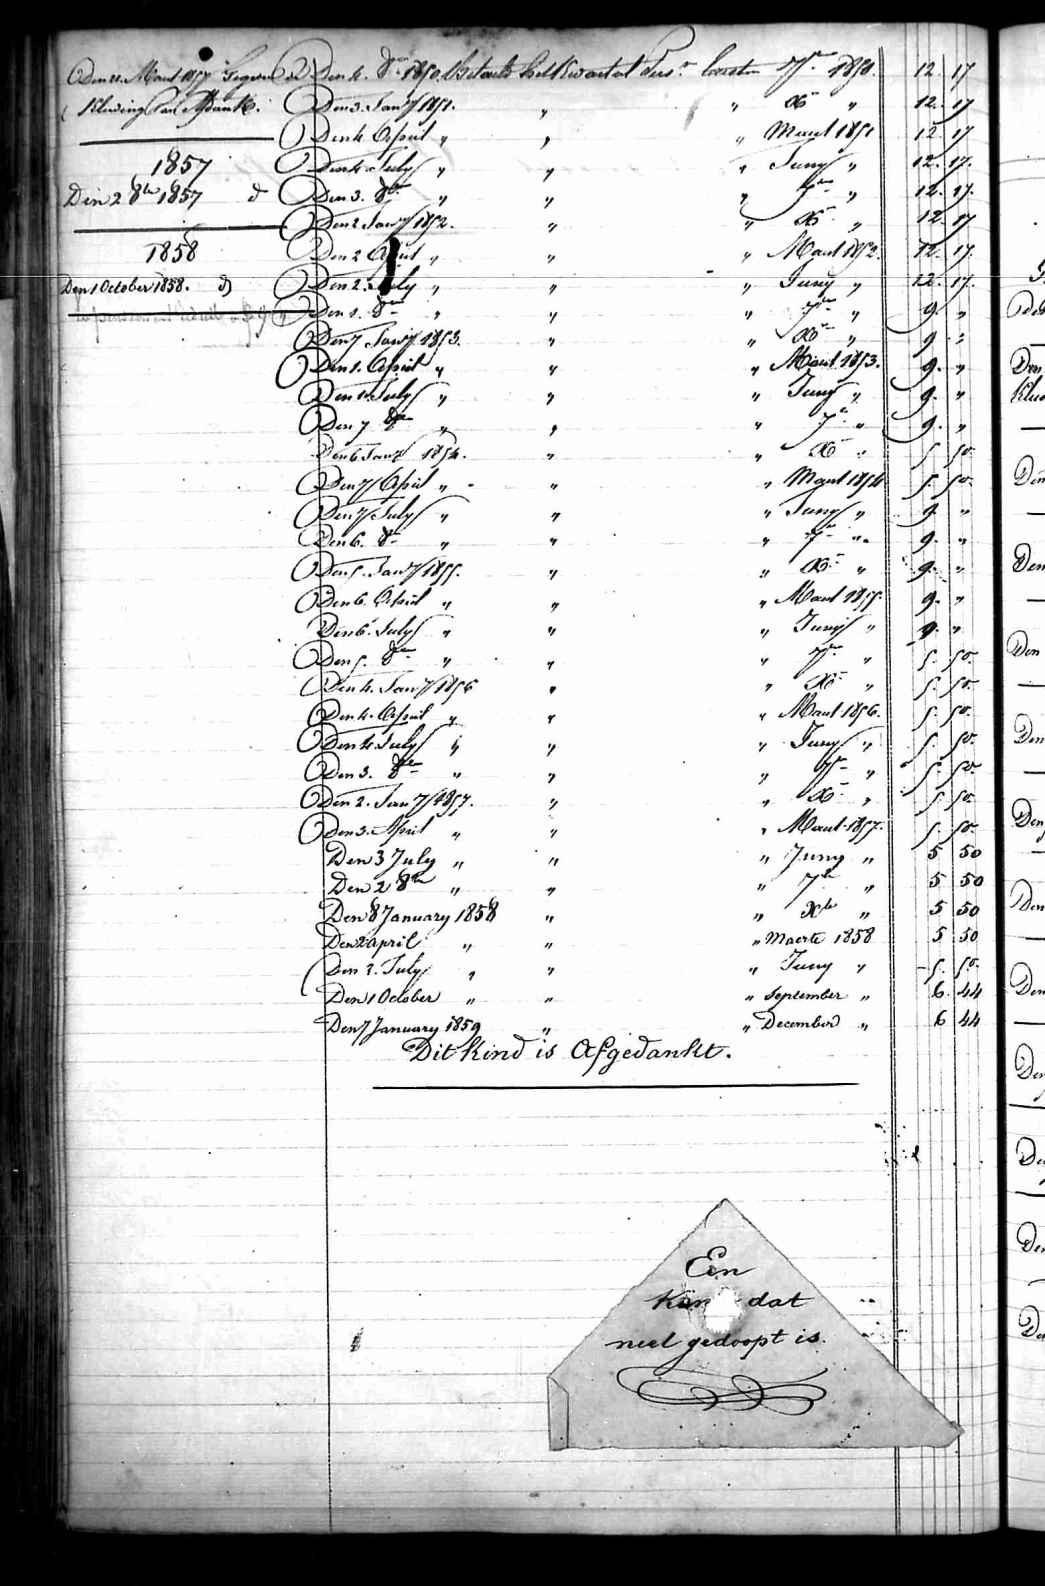 Den 4. 8er 1850. betaelt het kwartael Pens. 7er 1850. 12 17
Den 3. Jan'y 1851. " " Xer " 12. 17
Den 4 April " " " Maert 1851 12 17
Den 4 July " " " Juny " 12. 17.
Den 3. 8er " " " 7er " 12. 17.
Den 2 Jan'y 1852. " " Xer " 12. 17
Den 2 April " " " Maert 1852. 12. 17.
Den 2. July " " " Juny " 12. 17.
Den 1. 8er " " " 7er " 9 "
Den 7 Jan'y 1853. " " Xer " 9. "
Den 1. April " " " Maert 1853. 9. "
Den 1. July " " " Juny " 9. "
Den 7 8er " " " 7er " 9. "
Den 6 Jan'y 1854. " " Xer " 5. 50.
Den 7 April " " " Maert 1854 5. 50.
Den 7 July " " " Juny " 9. "
Den 6. 8er " " " 7er " 9. "
Den 5. Jan'y 1855. " " Xer " 9. "
Den 6. April " " " Maert 1855. 9. "
Den 6. July " " " Juny " 9. "
Den 5. 8er " " " 7er " 5. 50.
Den 4. Jan'y 1856 " " Xer " 5. 50.
Den 4. April " " " Maert 1856. 5. 50.
Den 4. July " " " Juny " 5. 50.
Den 3. 8er " " " 7er " 5. 50.
Den 2. Jan'y 1857. " " Xer " 5. 50.
Den 3. April " " " Maert 1857. 5. 50.
Den 3 July " " " Juny " 5 50
Den 2 8er " " " 7er " 5 50
Den 8 January 1858 " " Xber " 5 50
Den 2 april " " " Maerte 1858 5 50
Den 2. July " " " Juny " 5. 50.
Den 1 October " " " September " 6. 44
Den 7 January 1859 " " December " 6 44
Dit kind is Afgedankt.
Den Maert 1857
Kleeding
1857
Den 2 8ber 1857
1858
Den 1 October 1858.
Een
dat
niet gedoopt is.